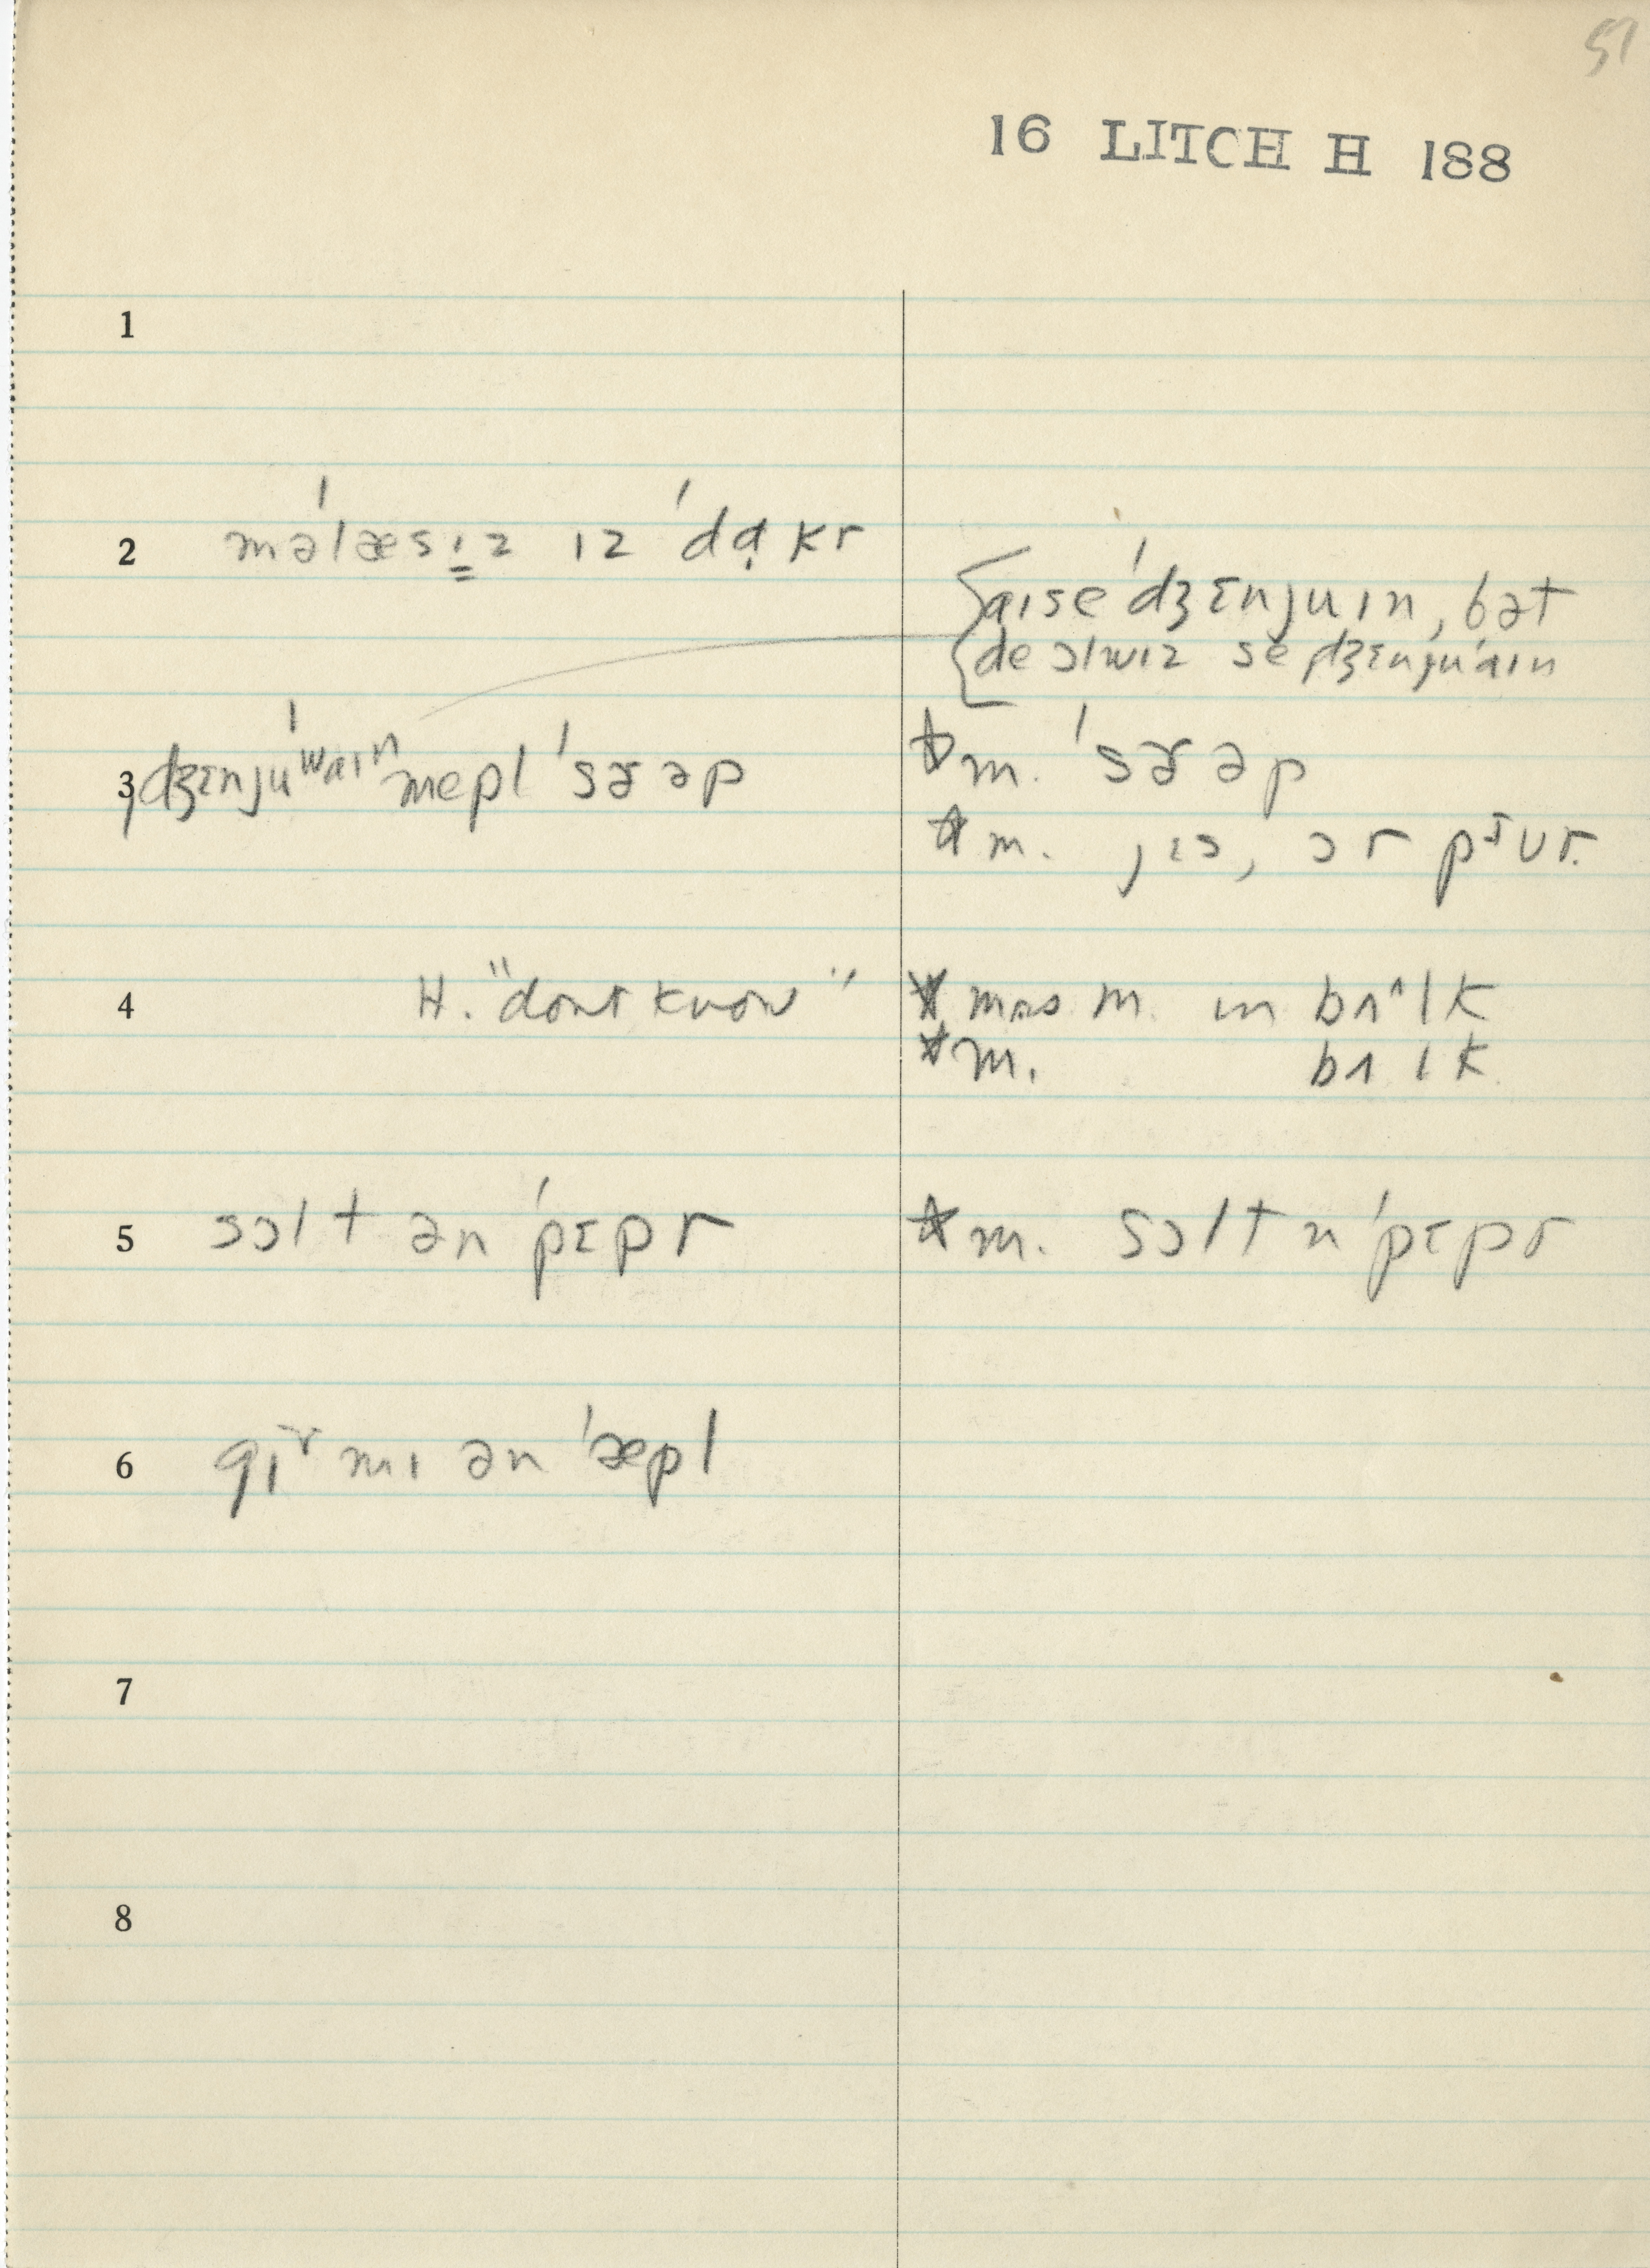 57
16 LITCH H 188
1
2 məˈlæsɪz ɪz ˈdɑ̣kr
aɪ se ˈdʒɛnjuɪn, bət
de ɔlwɪz se ˌdʒɛnjuˈaɪn
3 ˌdʒɛnjuˈwaɪn mepl ˈsɝəp
☆ m. ˈsɝəp
☆ m. jɪs, ɔr pɪ̆ur.
4 H. "dont know"
☆ mrs m. in bʌ^lk
☆ m. bʌlk
5 sɔlt ən ˈpɛpr
☆ m. sɔlt n ˈpɛpr
6 gɪᵛ mɪ ən ˈæpl
7
8